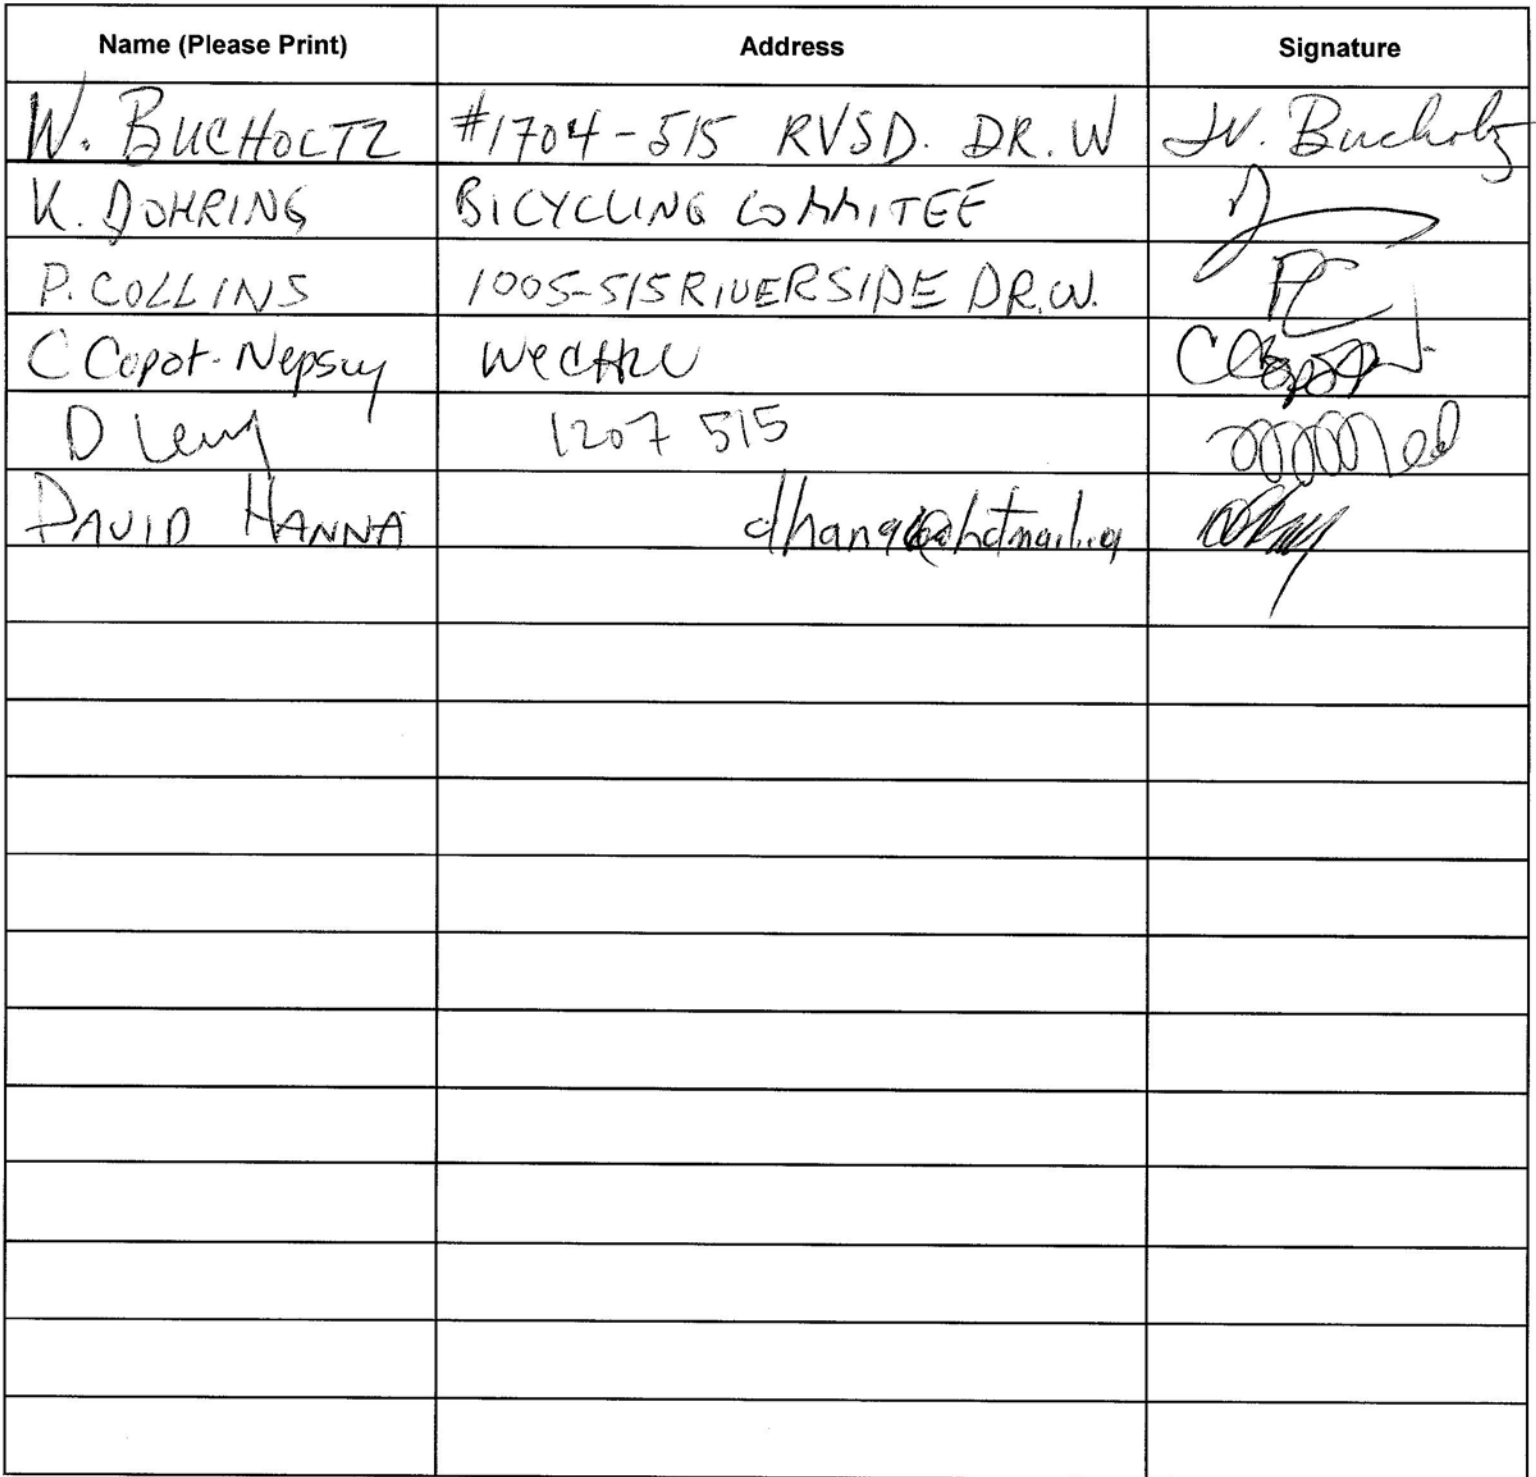 Name (Please Print) Address Signature
W. BUCHOLTZ #1704-515 RVSD. DR. W W. Bucholtz
K. DOHRING BICYCLING COMMITEE
P. COLLINS 1005-515 RIVERSIDE DR. W. PC
C Copot-Nepszy WECHU
D Levy 1207 515
DAVID HANNA